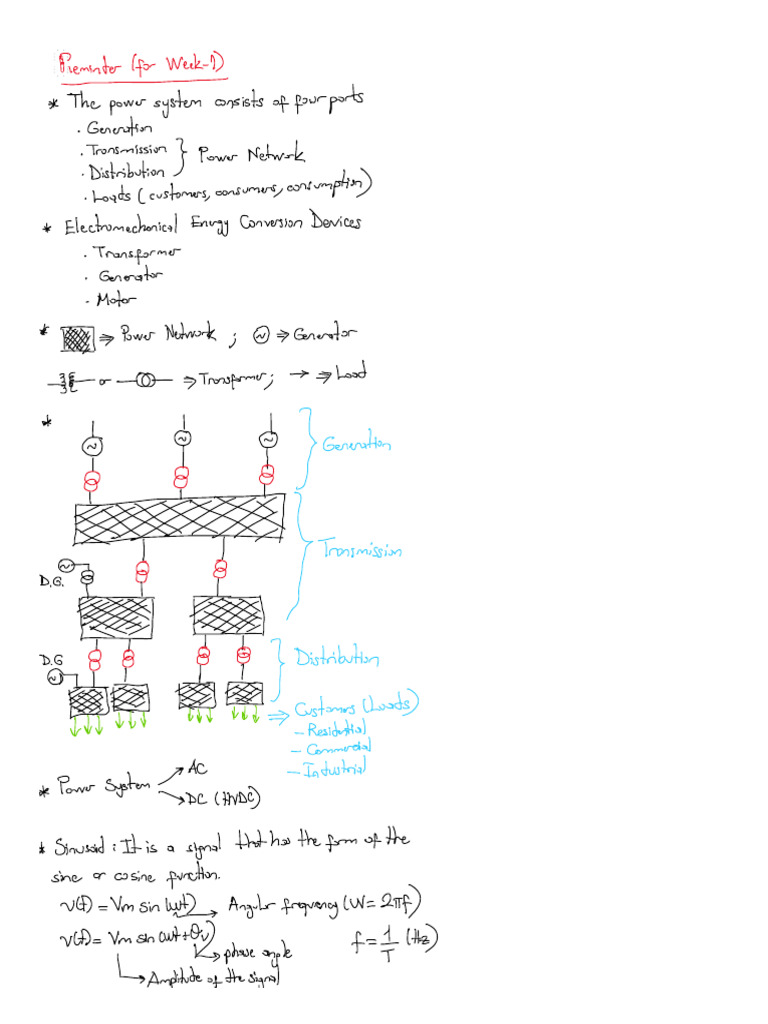 Reminder (for Week-1)
* The power system consists of four parts
. Generation
. Transmission
. Distribution } Power Network
. Loads (customers, consumers, consumption)
* Electromechanical Energy Conversion Devices
. Transformer
. Generator
. Motor
* ⇒ Power Network ; ⇒ Generator
or ⇒ Transformer; → ⇒ Load
*
~ ~ ~
Generation
Transmission
~
D.G.
D.G
~
Distribution
⇒ Customers (Loads)
- Residential
- Commercial
- Industrial
* Power System → AC
→ DC (HVDC)
* Sinusoid: It is a signal that has the form of the
sine or cosine function.
v(t) = Vm sin(wt) → Angular frequency (W = 2πf)
v(t) = Vm sin(wt+θv) f = 1/T (Hz)
→ phase angle
→ Amplitude of the signal